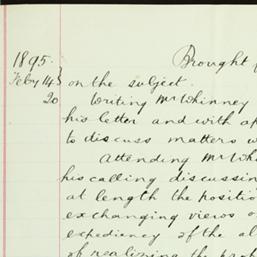 1895. Brought
Feby 14 on the subject.
20 Writing Mr Whinney
his letter and with
to discuss matters
Attending Mr
his calling discussing
at length the
exchanging views
expediency of the
of realizing the